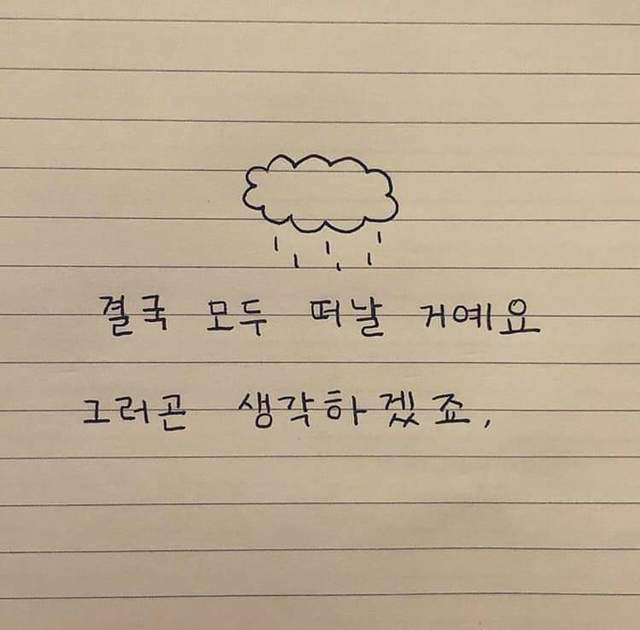 결국 모두 떠날 거예요
그러곤 생각하겠죠,